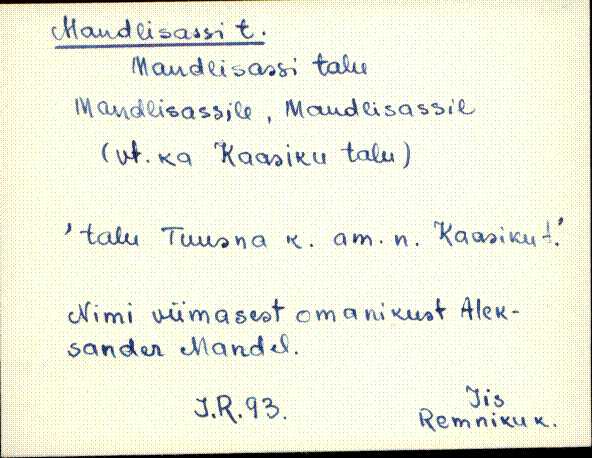 Mandlisassi t.
Mandlisassi talu
Mandlisassile, Mandlisassil
(vt. ka Kaasiku talu)
'talu Tuusna k. am. n. Kaasiku t.'
Nimi viimasest omanikust Alek-
sander Mandel.
J.R.93.
Iis
Remniku k.